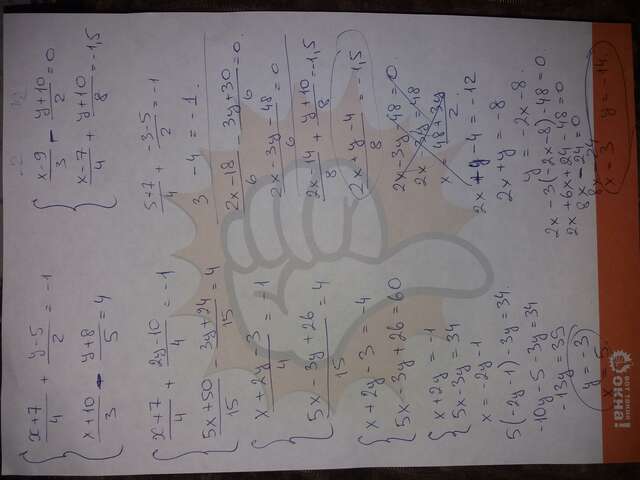 { (x+7)/4 + (y-5)/2 = -1
(x+10)/3 - (y+8)/5 = 4
{ (x+7)/4 + (2y-10)/4 = -1
(5x+50)/15 - (3y+24)/15 = 4
{ (x+2y-3)/4 = -1
(5x-3y+26)/15 = 4
{ x+2y-3 = -4
5x-3y+26=60
{ x+2y = -1
5x-3y=34
x = -2y-1
5(-2y-1)-3y=34.
-10y-5-3y=34
-13y=35
y=-3
{ (x-9)/3 - (y+10)/2 = 0
(x-7)/4 + (y+10)/8 = -1,5
(5+7)/4 + (-3-5)/2 = -1
3 -4 = -1.
(2x-18)/6 - (3y+30)/6 = 0.
(2x-3y-48)/6 = 0
(2x-14)/8 + (y+10)/8 = -1,5
(2x+y-4)/8 = -1,5
2x-3y-48=0.
2x-3y=48
x = (48+3y)/2.
2x+y-4=-12
2x+y=-8
y=-2x-8.
2x-3(-2x-8)-48=0.
2x+6x+24-48=0
8x-24=0
8x=24
x=3 y=-14
ВОТ ТАКИЕ
ОКНА!